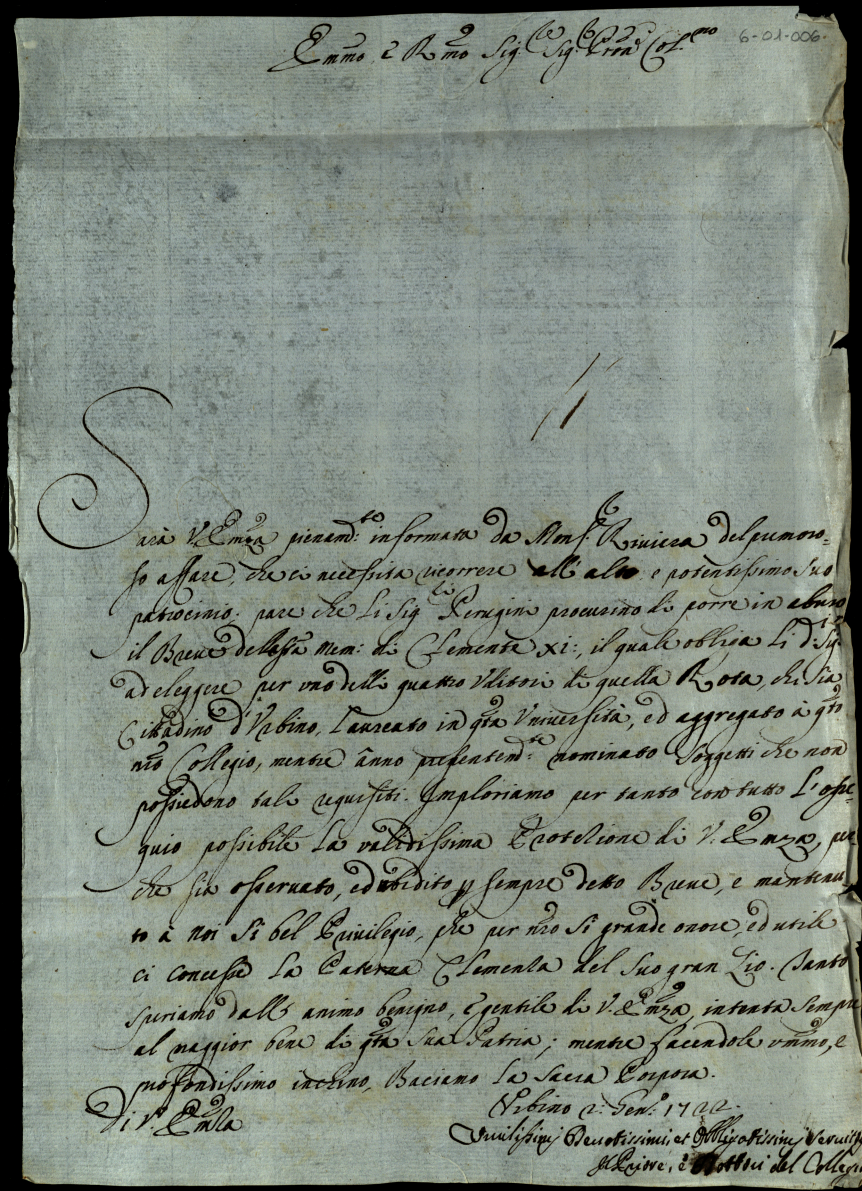 Emmo e Rmo Sig.re Sig.r Pron Col.mo
6-01-006.
Sarà V. Emza pienam.te informata da Mons.r Riviera del premoro=
so affare, che ci necessita ricorrere all' alto e potentissimo suo
patrocinio. pare che Li Sig.ri Perugini procurino di porre in abuso
il Breve della Sta Mem: di Clemente XI:, il quale obliga Li d.i Sig.ri
ad eleggere per uno delli quattro Uditori di quella Rota, chi sia
Cittadino d'Urbino, Laureato in qta Università, ed aggregato à qto
nro Collegio, mentre ànno presentem.te nominato Soggetti che non
possiedono tali requisiti. Imploriamo per tanto con tutto L' osse=
quio possibile La validissima Protezione di V. Emza, per
che sia osservato, ed ubidito p sempre detto Breve, e mantenu
to à noi sì bel Privilegio, che per nro sì grande onore, ed utile
ci concesse La Paterna Clemenza del suo gran Zio. Tanto
speriamo dall' animo benigno, e gentile di V. Emza, intenta sempre
al maggior bene di qta sua Patria; mentre facendole ummo, e
profondissimo inchino, Baciamo La Sacra Porpora.
Di V. Emza
Urbino 2: Gen.o 1722.
Umilissimi Devotissimi et Obbligatissimi Servit
Il Priore, e Dottori del Collegio